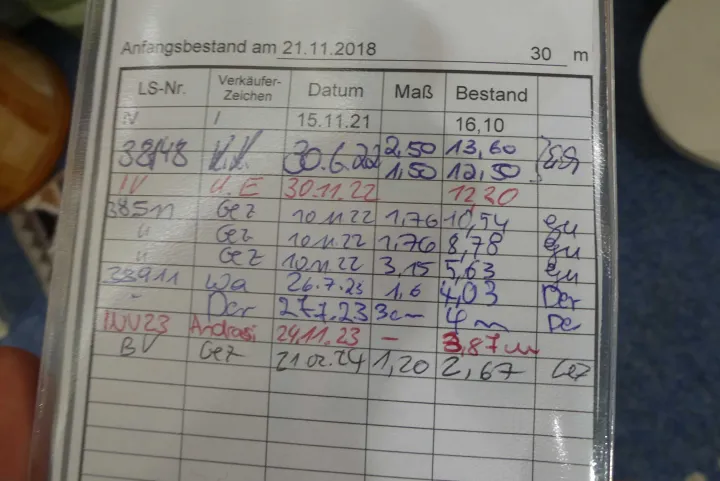 Anfangsbestand am 21.11.2018 30 m
LS-Nr. Verkäufer-Zeichen Datum Maß Bestand
15.11.21 16,10
30.6.22 2,50 13,60
1,50 12,50
IV U.E 30.11.22 12,20
38511 Gez 10.11.22 1,76 10,54 gu
" Gez 10.11.22 1,76 8,78 gu
" Gez 10.11.22 3,15 5,63 gu
33911 Wa 26.7.23 1,6 4,03 Der
" Der 27.7.23 3cm 4 m De
INV23 Andrasi 24.11.23 – 3,87 m
BV Gez 21.02.24 1,20 2,67 Gez